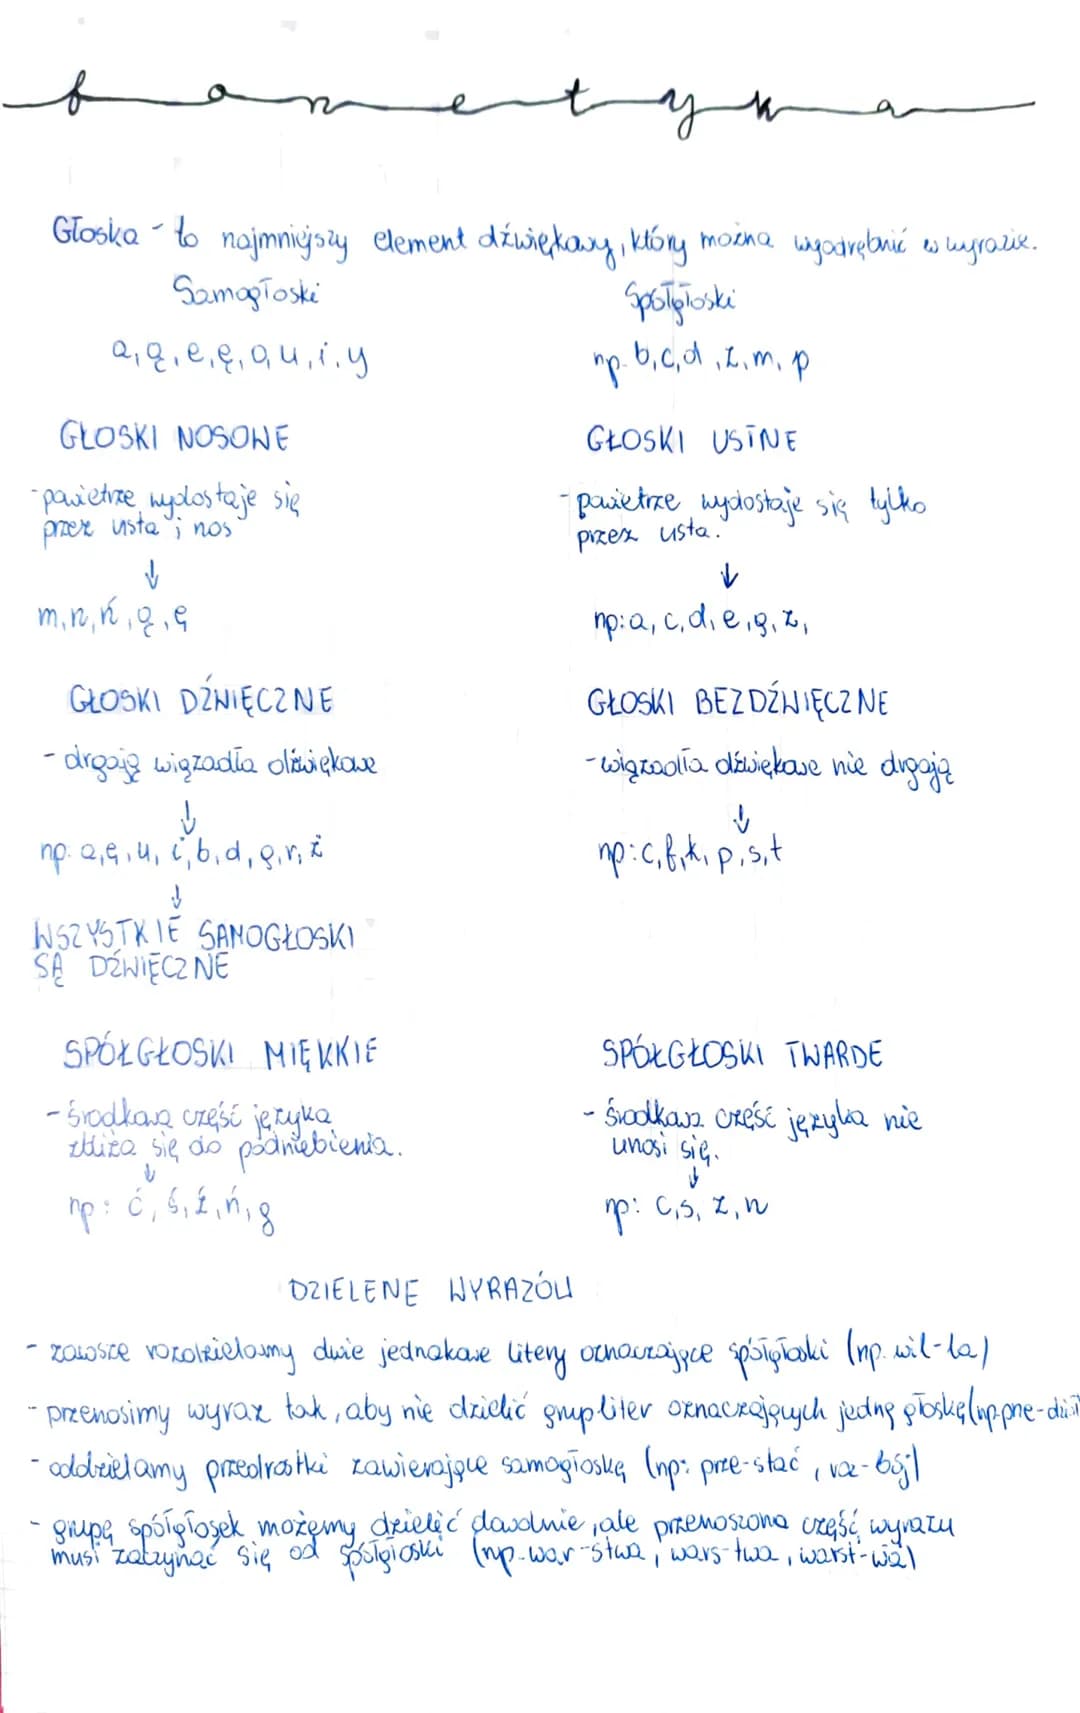 fonetyka
Głoska - to najmniejszy element dźwiękowy, który można wyodrębnić w wyrazie.
Samogłoski
Spółgłoski
a, ą, e, ę, o, u, i, y
np. b, c, d, z, m, p
GŁOSKI NOSOWE
GŁOSKI USTNE
- powietrze wydostaje się
przez usta i nos
- powietrze wydostaje się tylko
przez usta.
↓
↓
m, n, ń, ą, ę
np: a, c, d, e, g, z,
GŁOSKI DŹWIĘCZNE
GŁOSKI BEZDŹWIĘCZNE
- drgają wiązadła dźwiękowe
- wiązadła dźwiękowe nie drgają
↓
↓
np. a, ę, u, i, b, d, g, r, ż
np: c, f, k, p, s, t
↓
WSZYSTKIE SAMOGŁOSKI
SĄ DŹWIĘCZNE
SPÓŁGŁOSKI MIĘKKIE
SPÓŁGŁOSKI TWARDE
- środkowa część języka
zbliża się do podniebienia.
- środkowa część języka nie
unosi się.
↓
↓
np: ć, ś, ź, ń, g
np: c, s, z, n
DZIELENE WYRAZÓW
- zawsze rozdzielamy dwie jednakowe litery oznaczające spółgłoski (np. wil-la)
- przenosimy wyraz tak, aby nie dzielić grup liter oznaczających jedną głoskę (np.
- oddzielamy przedrostki zawierające samogłoskę (np: prze-stać,
- grupę spółgłosek możemy dzielić dowolnie, ale przenoszona część wyrazu
musi zaczynać się od spółgłoski (np. war-stwa, wars-twa, warst-wa)